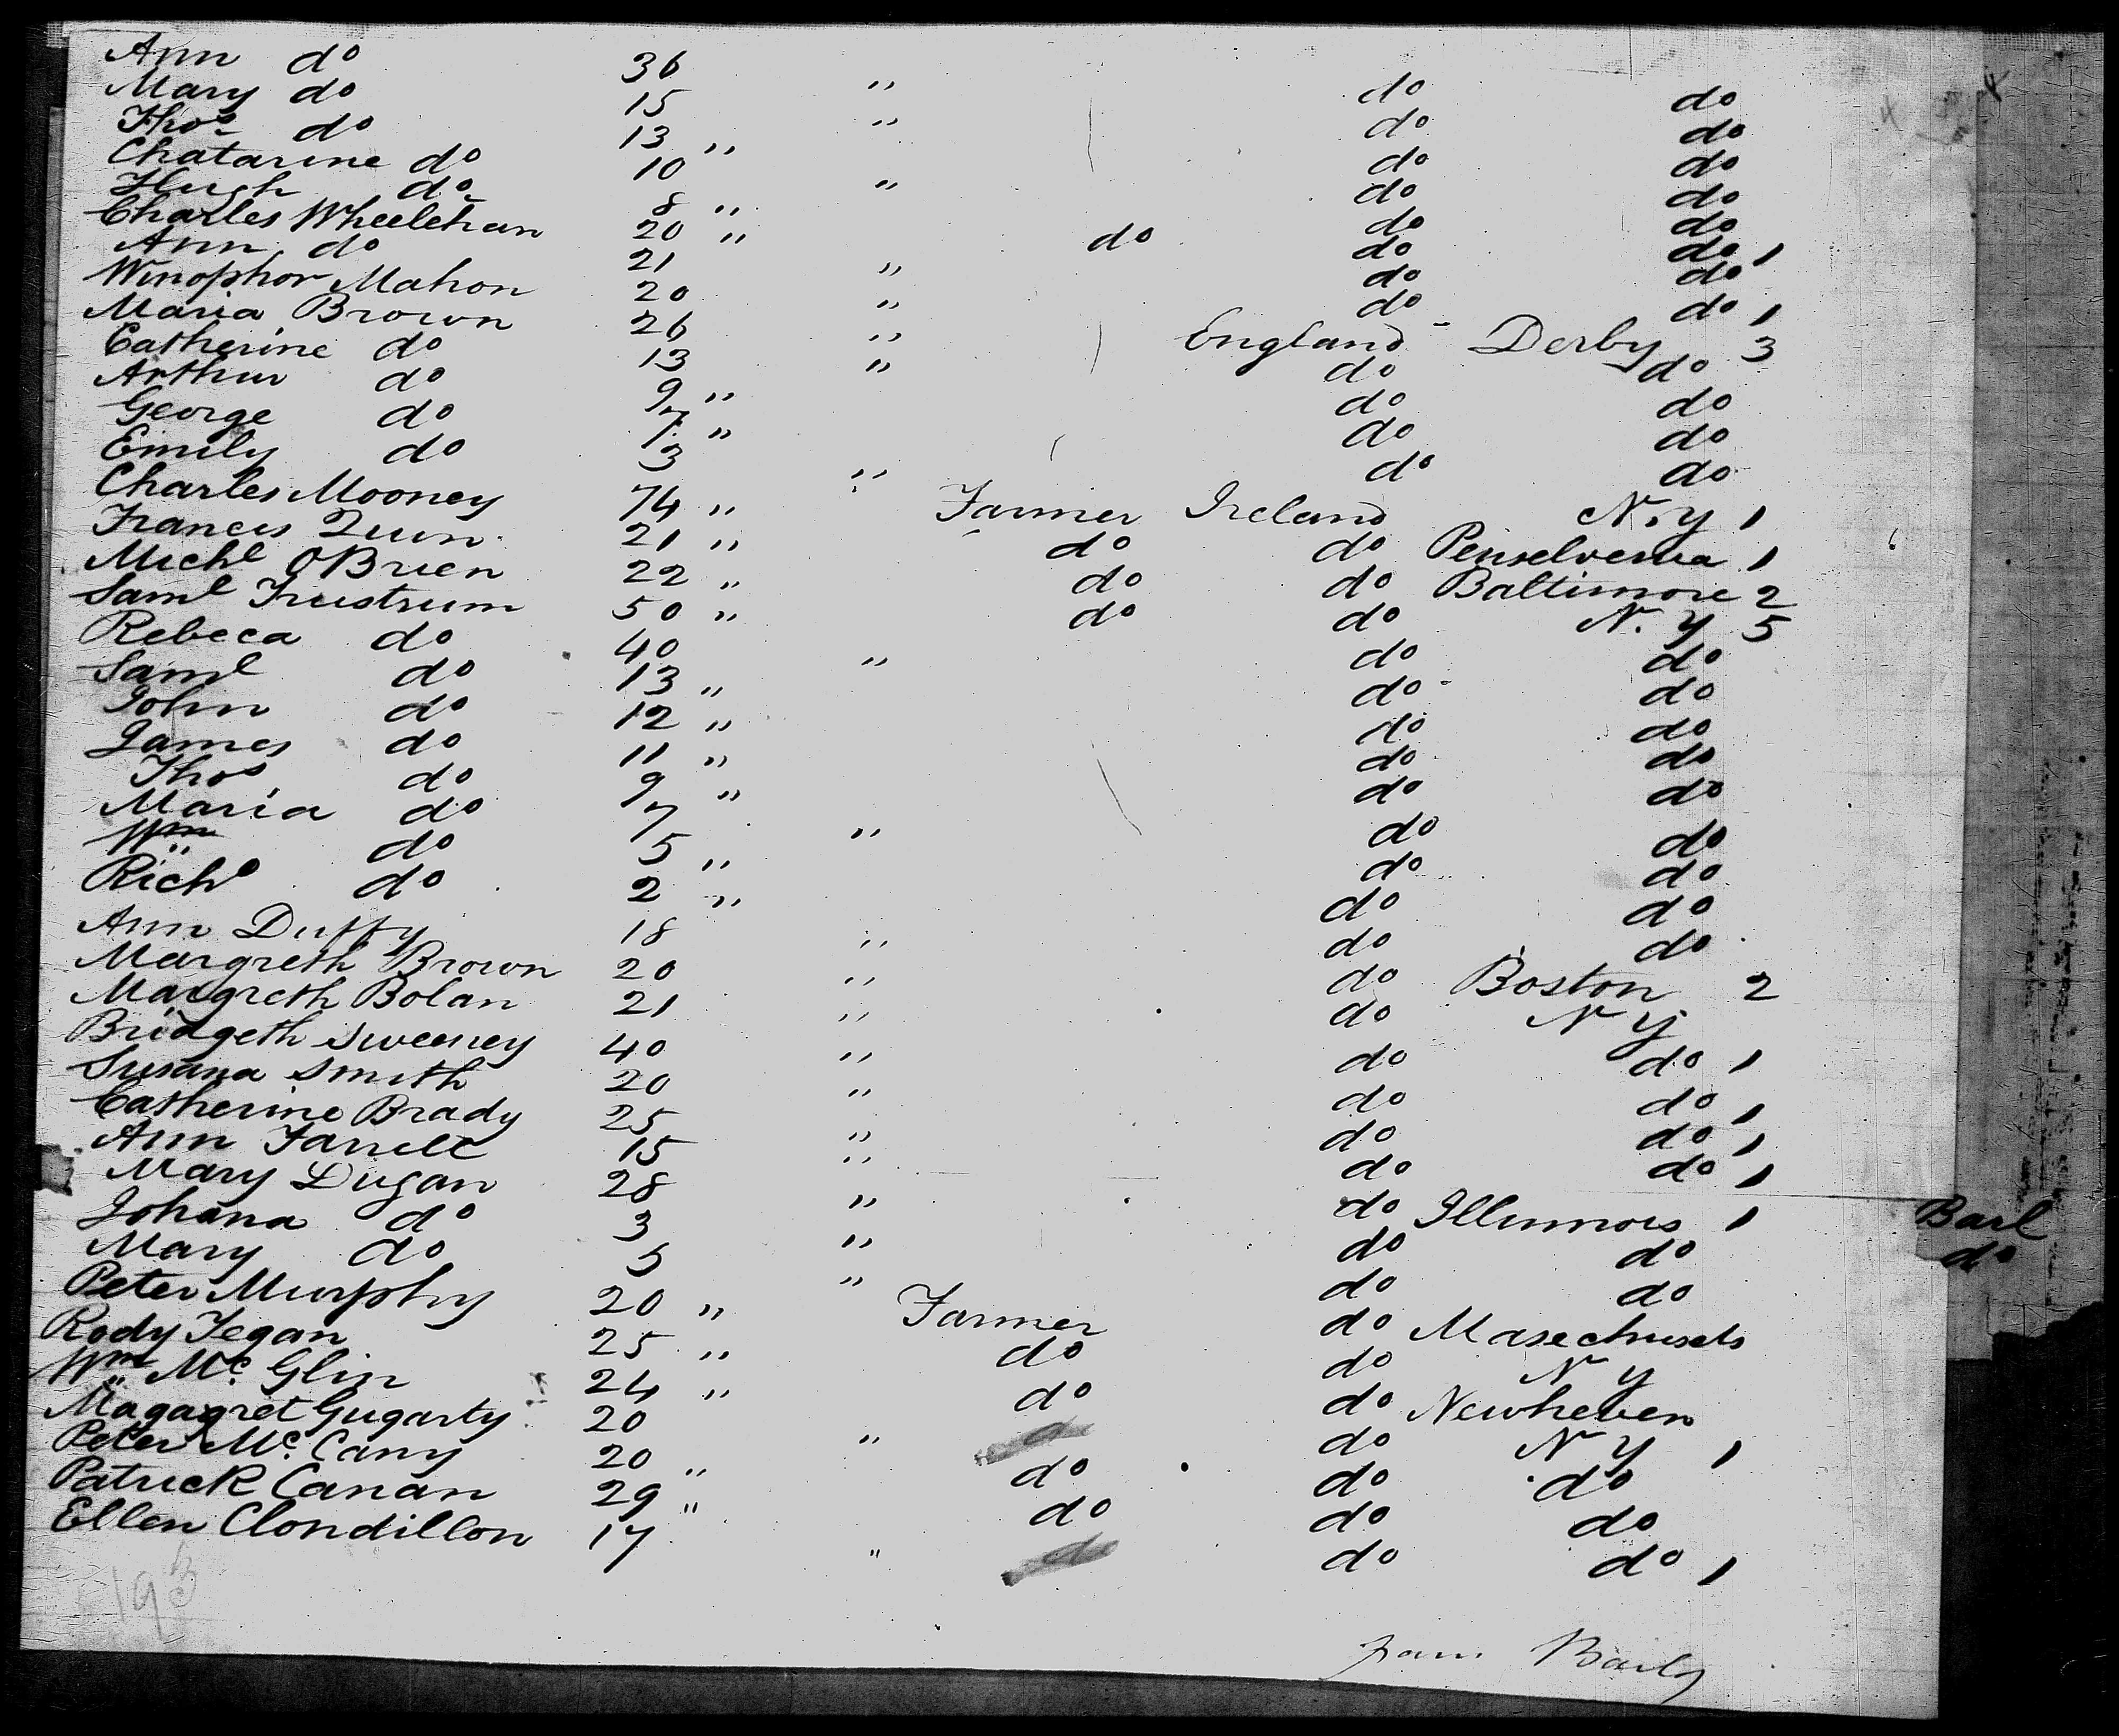 Ann do 36 " do do
Mary do 15 " do do
Thos do 13 " do do
Chatarine do 10 " do do
Hugh do 8 " do do
Charles Wheelehan 20 " do do do 1
Ann do 21 " do do
Winophor Mahon 20 " do do 1
Maria Brown 26 " England - Derby 3
Catherine do 13 " do do
Arthur do 9 " do do
George do 7 " do do
Emily do 3 " do do
Charles Mooney 74 " Farmer Ireland N.y 1
Francis Quin 21 " do do Penselvenia 1
Michl OBrien 22 " do do Baltimore 2
Saml Frustrum 50 " do do N.y 5
Rebeca do 40 " do do
Saml do 13 " do do
John do 12 " do do
James do 11 " do do
Thos do 9 " do do
Maria do 7 " do do
Wm do 5 " do do
Richd do 2 " do do
Ann Duffy 18 " do do
Margreth Brown 20 " do Boston 2
Margreth Bolan 21 " do N y
Bridgeth Sweeney 40 " do do 1
Susana Smith 20 " do do 1
Catherine Brady 25 " do do 1
Ann Farrell 15 " do do 1
Mary Dugan 28 " do Illinnois 1
Johana do 3 " do do
Mary do 5 " do do
Peter Murphy 20 " Farmer do Masechusets
Rody Fegan 25 " do do N y
Wm Mc Glin 24 " do do Newheven
Magagret Gugarty 20 " do do N y 1
Peter Mc Cany 20 " do do do
Patrick Canan 29 " do do do
Ellen Clondillon 17 " do do do 1
Barl
do
193